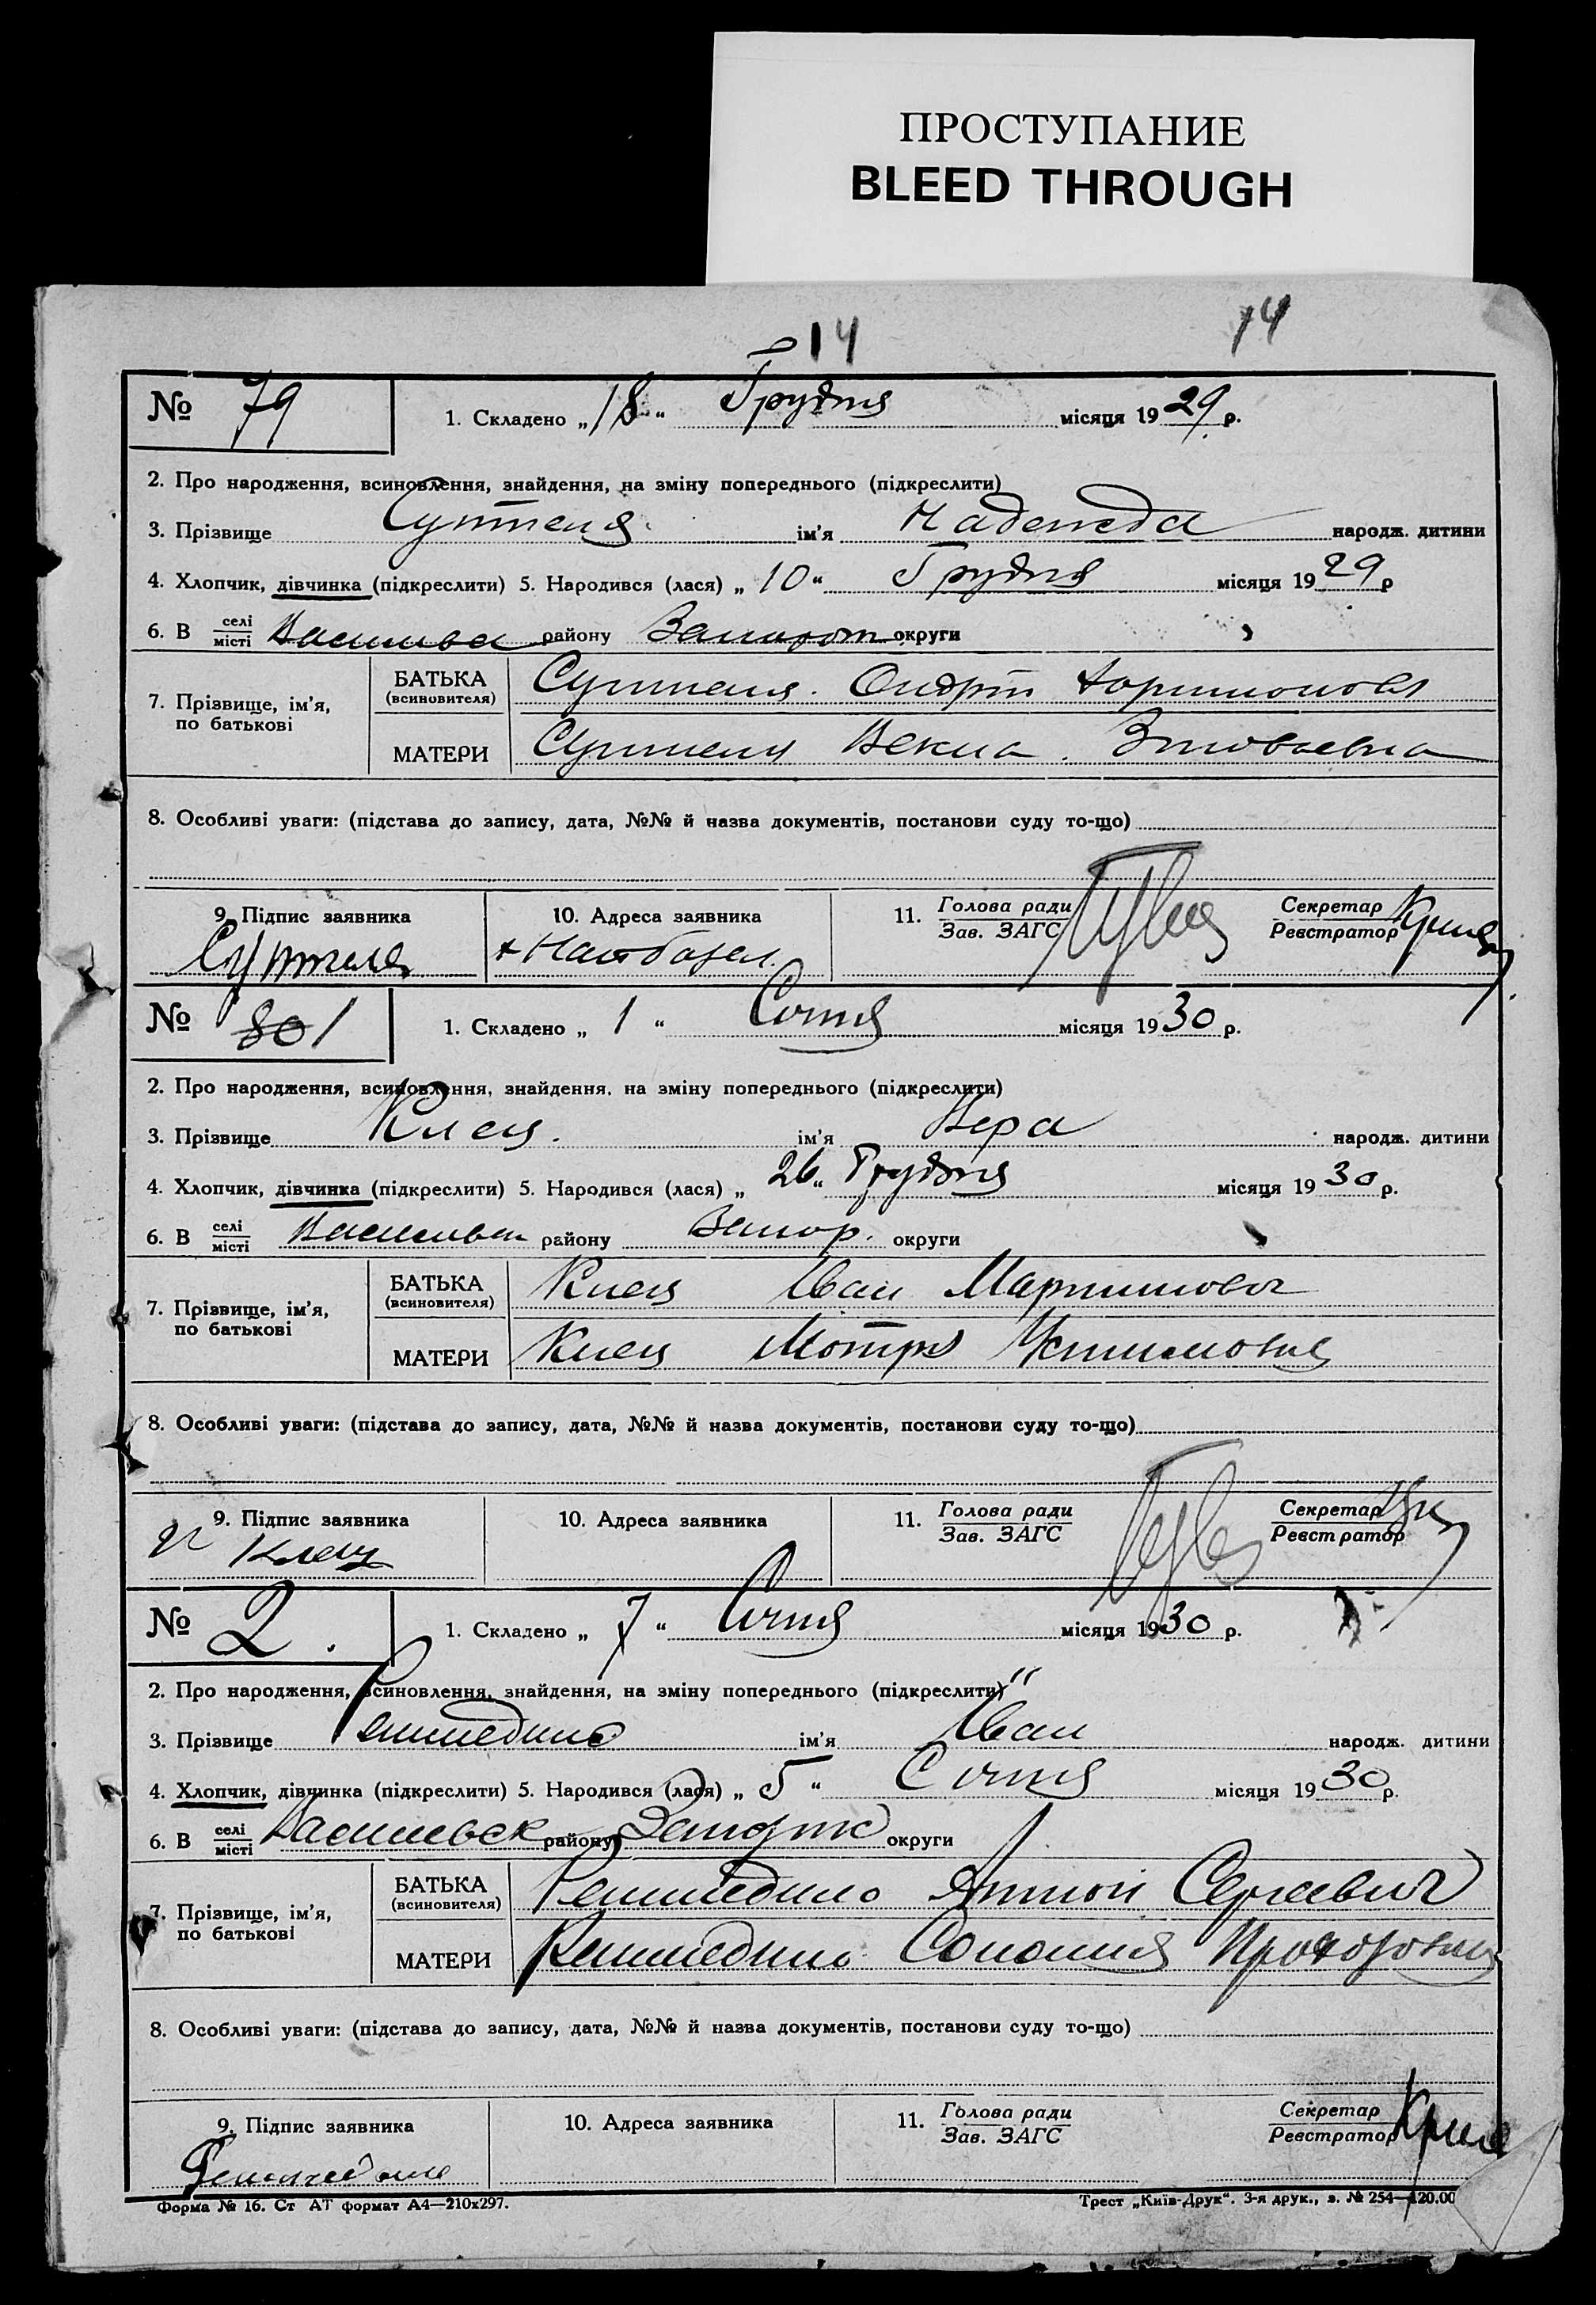 ПРОСТУПАНИЕ
BLEED THROUGH
14 14
№ 79 1. Складено „18“ Грудня місяця 1929 р.
2. Про народження, всиновлення, знайдення, на зміну попереднього (підкреслити)
3. Прізвище Суптеля ім'я Надежда народж. дитини
4. Хлопчик, дівчинка (підкреслити) 5. Народився (лася) „10“ Грудня місяця 1929 р
6. В селі/місті району округи
7. Прізвище, ім'я, по батькові БАТЬКА (всиновителя) Суптеля
МАТЕРИ Суптеля
8. Особливі уваги: (підстава до запису, дата, №№ й назва документів, постанови суду то-що)
9. Підпис заявника 10. Адреса заявника 11. Голова ради/Зав. ЗАГС Секретар/Реєстратор
Суптеля
№ 80 1 1. Складено „1“ Січня місяця 1930 р.
2. Про народження, всиновлення, знайдення, на зміну попереднього (підкреслити)
3. Прізвище Клец ім'я Вера народж. дитини
4. Хлопчик, дівчинка (підкреслити) 5. Народився (лася) „26“ Грудня місяця 1930 р.
6. В селі/місті району Запор. округи
7. Прізвище, ім'я, по батькові БАТЬКА (всиновителя) Клец Іван Мартинович
МАТЕРИ Клец Мотря Устимовна
8. Особливі уваги: (підстава до запису, дата, №№ й назва документів, постанови суду то-що)
9. Підпис заявника 10. Адреса заявника 11. Голова ради/Зав. ЗАГС Секретар/Реєстратор
Клец
№ 2. 1. Складено „7“ Січня місяця 1930 р.
2. Про народження, всиновлення, знайдення, на зміну попереднього (підкреслити)
3. Прізвище ім'я Іван народж. дитини
4. Хлопчик, дівчинка (підкреслити) 5. Народився (лася) „5“ Січня місяця 1930 р.
6. В селі/місті Василівск району округи
7. Прізвище, ім'я, по батькові БАТЬКА (всиновителя) Антон Сергеевич
МАТЕРИ Соломия Прохоровна
8. Особливі уваги: (підстава до запису, дата, №№ й назва документів, постанови суду то-що)
9. Підпис заявника 10. Адреса заявника 11. Голова ради/Зав. ЗАГС Секретар/Реєстратор
Форма № 16. Ст АТ формат А4—210x297. Трест „Київ-Друк“. 3-я друк., з. № 254—120.00